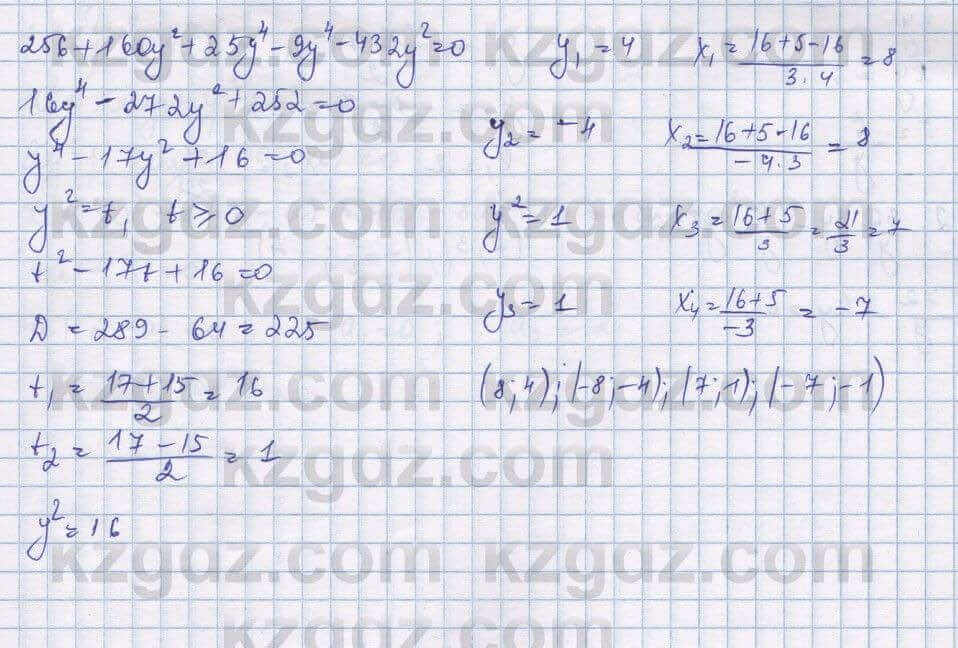 256+160y²+25y⁴-9y⁴-432y²=0
16y⁴-272y²+252=0
y⁴-17y²+16=0
y²=t, t≥0
t²-17t+16=0
D=289-64=225
t₁=(17+15)/2=16
t₂=(17-15)/2=1
y²=16
y₁=4 x₁=(16+5-16)/(3·4)=8
y₂=-4 x₂=(16+5-16)/(-4·3)=8
y²=1 x₃=(16+5)/3=21/3=7
y₃=1 x₄=(16+5)/-3=-7
(8;4);(-8;-4);(7;1);(-7;-1)
kzgdz.com
kzgdz.com
kzgdz.com
kzgdz.com
kzgdz.com
kzgdz.com
kzgdz.com
kzgdz.com